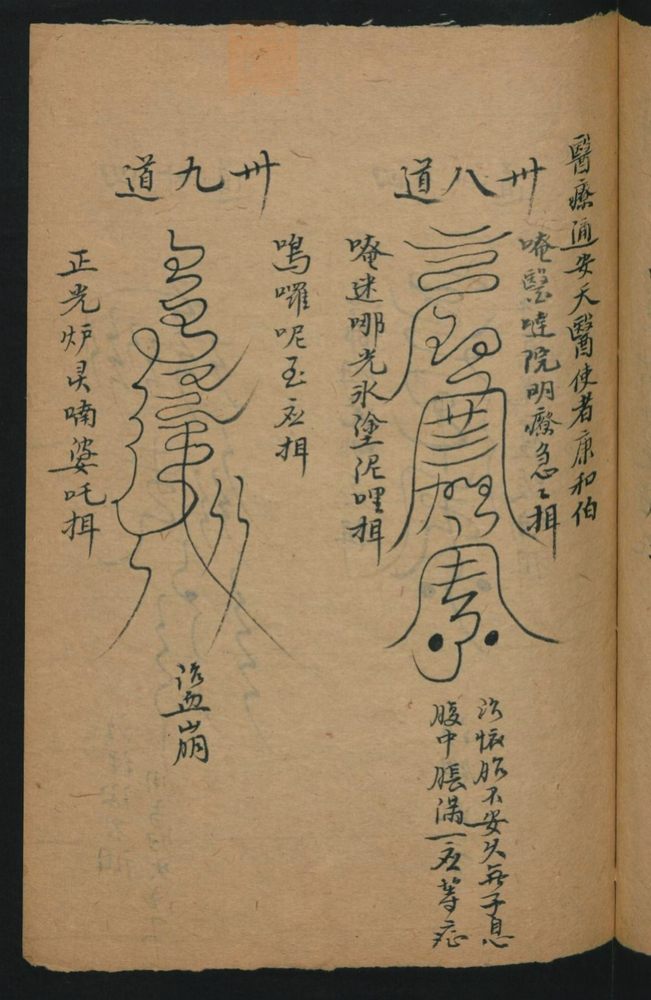 醫療通安天醫使者康和伯
卅八道
唵醫噠院明癈急急揖
唵迷哪光氷塗泥哩揖
治懷胎不安久無子息
腹中脹滿一应等症
卅九道
嗚囉呢玉应揖
正光炉灵喃婆吒揖
治血崩